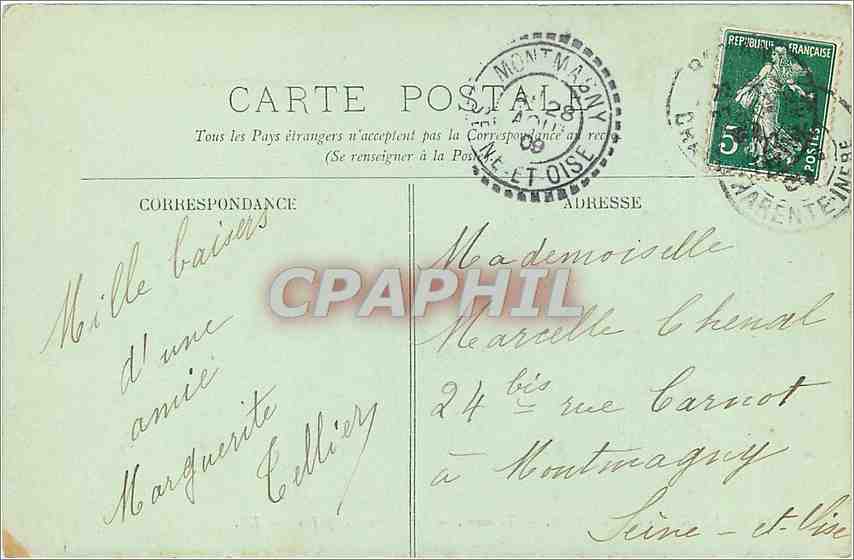 RÉPUBLIQUE FRANÇAISE
5
POSTES
CHARENTE-INFRE
MONTMAGNY
28
AOUT
09
SEINE-ET-OISE
CARTE POSTALE
Tous les Pays étrangers n'acceptent pas la Correspondance au recto
(Se renseigner à la Poste)
CORRESPONDANCE
Mille baisers
d'une
amie
Marguerite
Tellier
ADRESSE
Mademoiselle
Marcelle Chenal
24 bis rue Carnot
à Montmagny
Seine-et-Oise
CPAPHIL